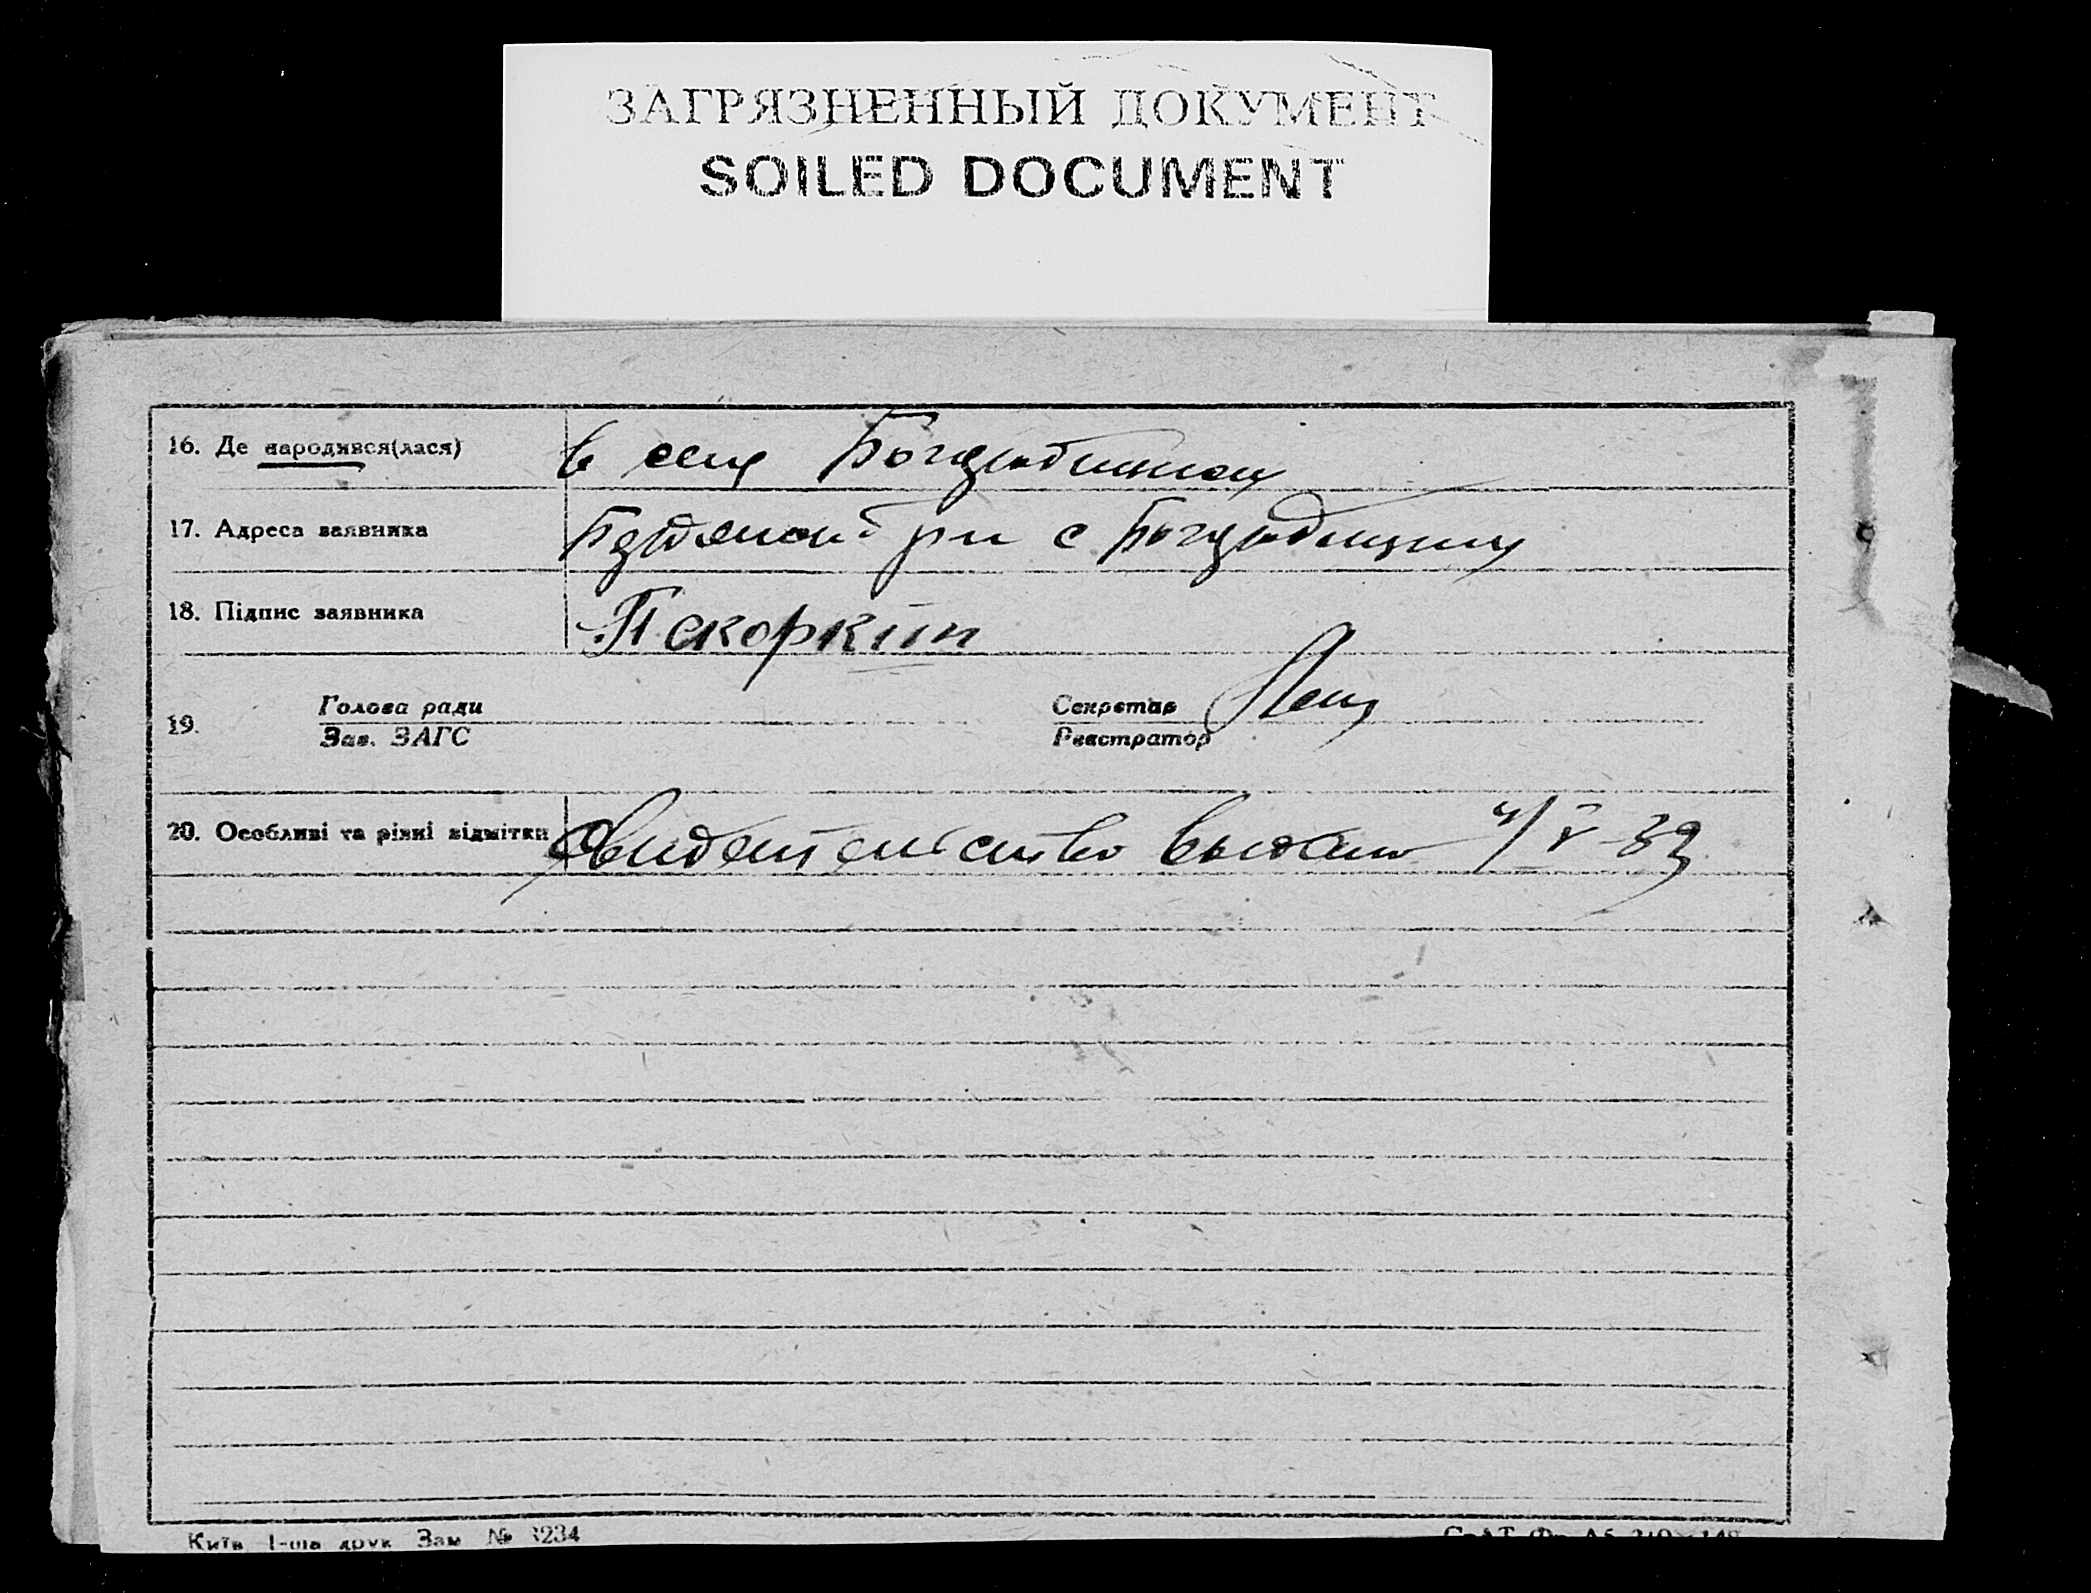 ЗАГРЯЗНЕННЫЙ ДОКУМЕНТ
SOILED DOCUMENT
16. Де народився(лася) в селі
17. Адреса заявника с
18. Підпис заявника Піскоркін
Голова ради Секретар
19.
Зав. ЗАГС Реєстратор
20. Особливі та різні відмітки Свидетельство выдано 4/V-39
Київ 1-ша друк Зам № 3234